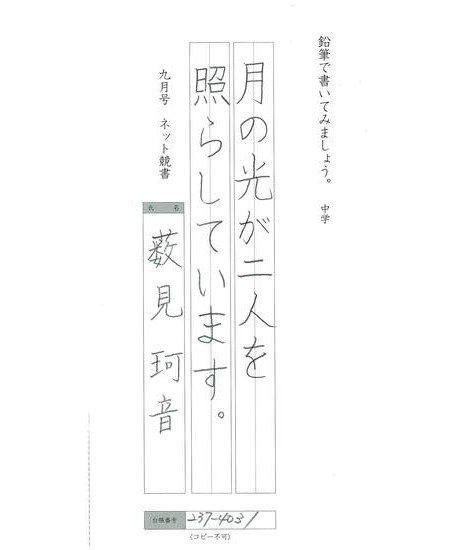 鉛筆で書いてみましょう。 中学
月の光が二人を
照らしています。
九月号 ネット競書
氏 名
薮見 珂音
台帳番号 237-4031
(コピー不可)